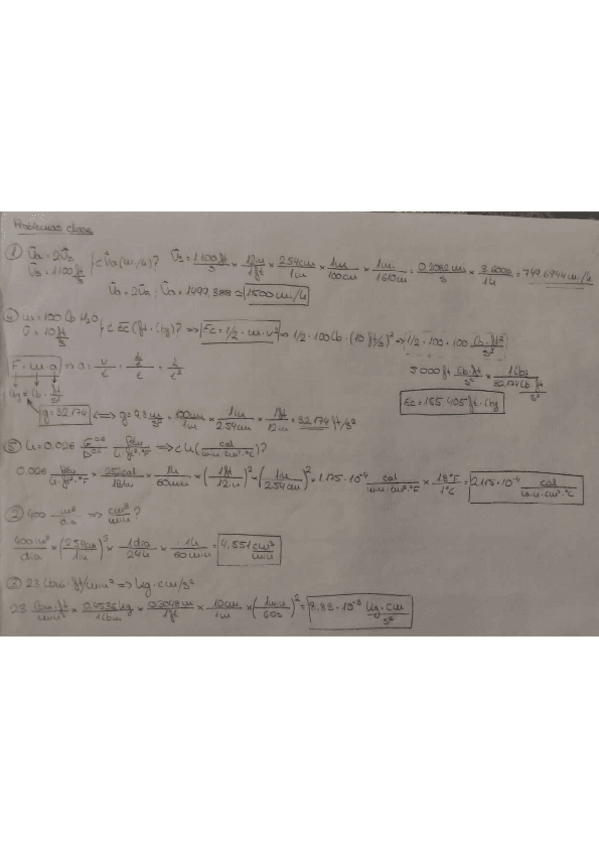 Problemas clase
① v̄a = 2v̄s
v̄s = 1100 ft/s } ¿ v̄a (mi/h)? v̄s = 1100 ft/s × 12in/1ft × 2.54cm/1in × 1m/100cm × 1mi/1610m = 0.2082 mi/s × 3600s/1h = 749.6944 mi/h
v̄a = 2v̄s ; v̄a = 1499.388 ≈ 1500 mi/h
④ m = 100 lb H₂O
v̄ = 10 ft/s } ¿ Ec (ft · lbf)? ⇒ Ec = 1/2 · m · v² ⇒ 1/2 · 100 lb · (10 ft/s)² ⇒ 1/2 · 100 · 100 lb · ft²/s²
F = m · a ⇒ a =
5000 ft lb·ft/s² × 1lbf/32.174 lb ft/s²
lbf = lb · ft/s²
g = 32.174 ⟺ g = 9.8 m/s² × 100cm/1m × 1in/2.54cm × 1ft/12in = 32.174 ft/s²
Ec = 155.405 ft · lbf
⑤ h = 0.026 G^0.6/D^0.4 Btu/h·ft²·°F ⇒ ¿ h (cal/min·cm²·°C)?
0.026 Btu/h·ft²·°F × 252cal/1Btu × 1h/60min × (1ft/12in)² × (1in/2.54cm)² = 1.175·10⁻⁴ cal/min·cm²·°F × 1.8°F/1°C = 2.115·10⁻⁴ cal/min·cm²·°C
② 400 in³/día ⇒ cm³/min?
400in³/día × (2.54cm/1in)³ × 1día/24h × 1h/60min = 4.551 cm³/min
③ 23 lbm · ft/min² ⇒ kg · cm/s²
23 lbm·ft/min² × 0.4536kg/1lbm × 0.3048m/1ft × 100cm/1m × (1min/60s)² = 8.83·10⁻² kg·cm/s²